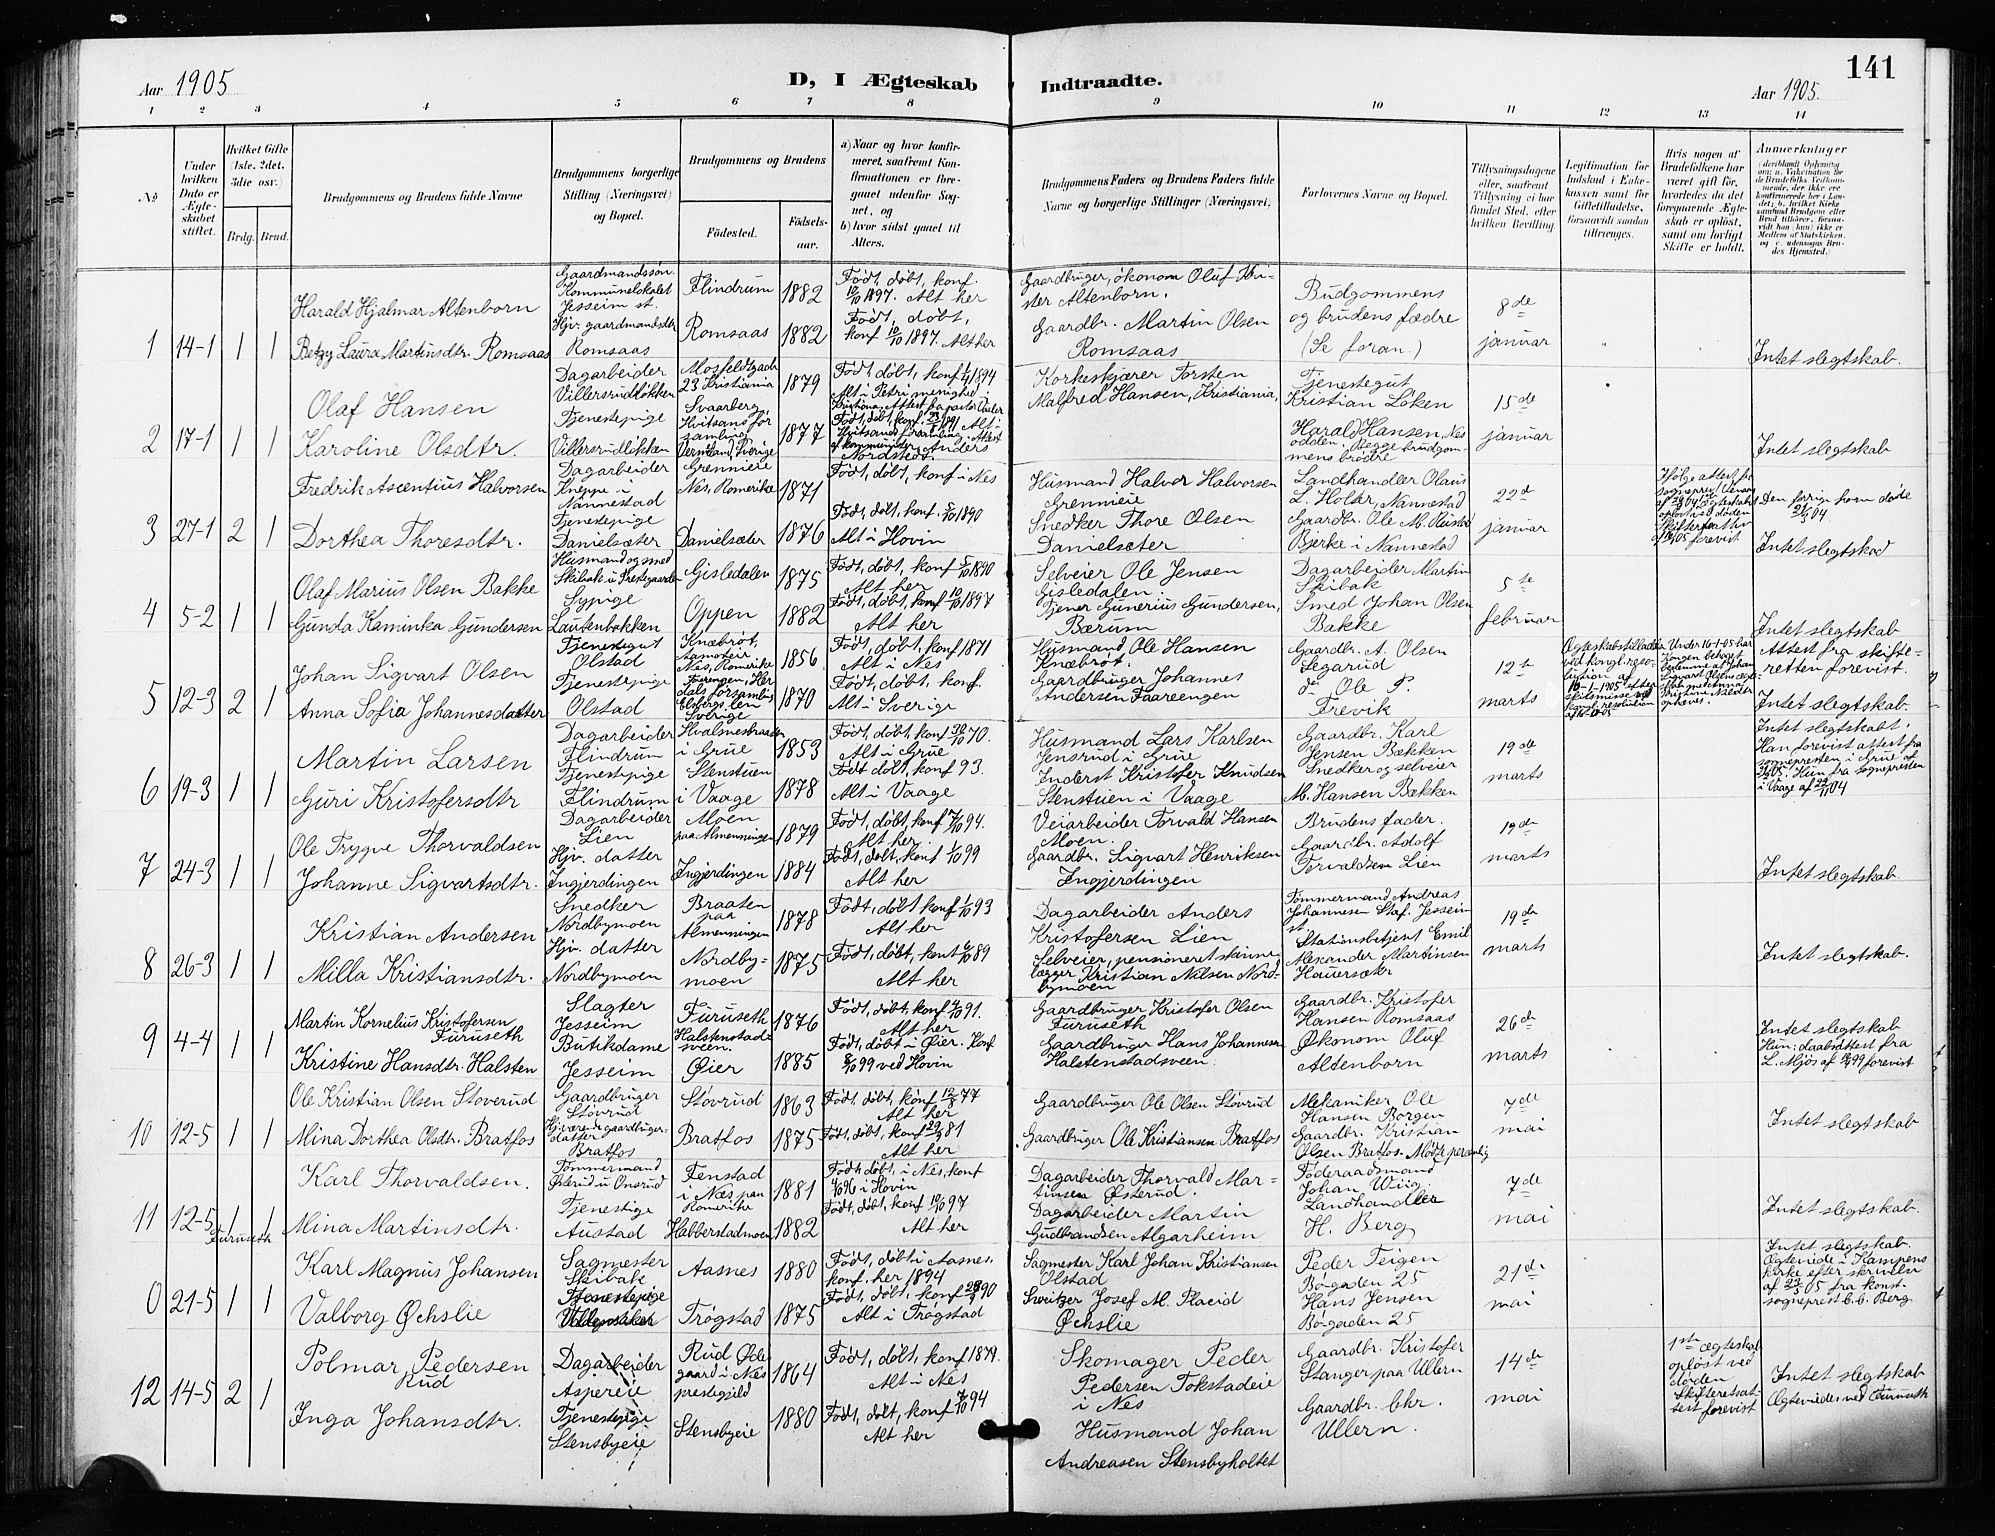 141
Aar 1905
D, I Ægteskab Indtraadte.
Aar 1905.
1 2 3 4 5 6 7 8 9 10 11 12 13 14
No
Under hvilken Dato er Ægteskabet stiftet.
Hvilket Gifte (1ste, 2det, 3die osv.)
Brdg. Brud.
Brudgommens og Brudens fulde Navne
Brudgommens borgerlige Stilling (Næringsvei) og Bopæl.
Brudgommens og Brudens
Fødested. Fødselsaar.
a) Naar og hvor konfirmeret, saafremt Konfirmationen er foregaaet udenfor Sognet, og
b) hvor sidst gaaet til Alters.
Brudgommens Faders og Brudens Faders fulde Navne og borgerlige Stillinger (Næringsvei)
Forlovernes Navne og Bopæl.
Tillysningsdagene eller, saafremt Tillysning ei har fundet Sted, efter hvilken Bevilling.
Legitimation for Indskud i Enkekassen samt for Giftetilladelse, forsaavidt saadan tiltrænges.
Hvis nogen af Brudefolkene har været gift før, hvorledes da det foregaaende Ægteskab er opløst, samt om lovligt Skifte er holdt.
Anmærkninger
1 14-1 1 1
Harald Hjalmar Altenborn
Gaardmandssøn.
Kommunelokalet
Jesseim st.
Flindrum 1882
Født, døbt, konf.
10/10 1897. Alt her
Gaardbruger, økonom Oluf Kri-
ster Altenborn.
Budgommens
og brudens fædre
(Se foran.)
8de
januar
Betzy Laura Martinsdtr. Romsaas
Hjv. gaardmandsdtr
Romsaas
Romsaas 1882
Født, døbt,
konf 10/10 1897. Alt her
Gaardbr. Martin Olsen
Romsaas
Intet slegtskab.
2 17-1 1 1
Olaf Hansen
Dagarbeider
Villersrudløkken
Mosfeldtgade
23 Kristiania
1879
Født, døbt, konf 1894
Alt i Petri menighed
Korkeskjærer Torsten
Malfred Hansen, Kristiania,
Tjenestegut
Kristian Løken
15de
januar
Karoline Olsdtr.
Tjenestepige
Villersrudløkken
Svaarberg,
Hvitsand for
samling
Vermland, Sverige
1877
Anders
Nordstedt
Harald Hansen, Nes
oddelen. Begge brudgom-
mens brødre
Intet slegtskab
3 27-1 2 1
Fredrik Ascentius Halvorsen
Dagarbeider
Kneppe i
Nannestad
Grennieie
Nes, Romerike
1871
Født, døbt, konf i Nes
Husmand Halvor Halvorsen
Grennieie
Landhandler Olaus
L. Holter, Nannestad
22de
januar
Den forrige kone døde
04
Dorthea Thoresdtr.
Tjenestepige
Danielsæter
Danielsæter 1876
Født, døbt, konf. 5/10 1890
Alt i Hovin
Snedker Thore Olsen
Danielsæter
Gaardbr. Ole M. Reistad
Bjerke i Nannestad
Intet slegtskab
4 5-2 1 1
Olaf Marius Olsen Bakke
Husmand og smed
Skibak u. Prestgaarden
Gisledalen 1875
Født, døbt, konf 5/10 1890
Alt her
Selveier Ole Jensen
Gisledalen
Dagarbeider Martin
Skibak
5te
februar
Gunda Kaminka Gundersen
Sypige
Lautenbakken
Oppen 1882
Født, døbt, konf 10/10 1897
Alt her
Tjener Gunerius Gundersen,
Bærum
Smed Johan Olsen
Bakke
Intet slegtskab
5 12-3 2 1
Johan Sigvart Olsen
Tjenestegut
Olstad
Knæbrøt,
Nes, Romerike
1856
Født, døbt, konf 1871
Alt i Nes
Husmand Ole Hansen
Knæbrøt.
Gaardbr. A. Olsen
Legarud
12te
marts
Egteskabstilladelse
ved kongl. reso-
lution af
16-1-1905 efter
skilsmisse ved
kongl. resolution
Under 16-1-05 har
Kongen behaget
bestemme at Johan
Sigvart Olsens egte-
skab med Anna
ophæves.
Attest fra skifte-
retten forevist.
Anna Sofia Johannesdatter
Tjenestepige
Olstad
Sverige
1870
Født, døbt, konf.
Alt i Sverige
Gaardbruger Johannes
Andersen Faareengen
do Ole P.
Frevik
Intet slegtskab.
6 19-3 1 1
Martin Larsen
Dagarbeider
Flindrum
i Grue
1853
Født, døbt, konf 30/10 70.
Alt i Grue
Husmand Lars Karlsen
Jensrud i Grue
Gaardbr. Karl
Jensen Bækken
19de
marts
Intet slegtskabt.
Han forevist attest fra
sognepresten i Grue af
05. Hun fra sognepresten
i Vaage af 04
Guri Kristofersdtr
Tjenestepige
Flindrum
Stenstuen
i Vaage
1878
Født døbt, konf 93.
Alt i Vaage
Inderst Kristofer Knudsen
Stenstuen i Vaage
Snedker og selveier
M. Hansen Bækken
7 24-3 1 1
Ole Trygve Thorvaldsen
Dagarbeider
Lien
Moen
paa Almenningen
1879
Født, døbt, konf 7/10 94.
Alt her
Veiarbeider Torvald Hansen
Moen.
Brudens fader.
19de
marts
Johanne Sigvartsdtr.
Hjv. datter
Ingjerdingen
Ingjerdingen 1884
Født, døbt, konf 1/10 99
Alt her
Gaardbr. Sigvart Henriksen
Ingjerdingen
Gaardbr. Adolf
Torvaldsen Lien
Intet slegtskab
8 26-3 1 1
Kristian Andersen
Snedker
Nordbymoen
Braaten
paa
Almenningen
1878
Født, døbt konf 1/10 93
Alt her
Dagarbeider Anders
Kristofersen Lien
Tømmermand Andreas
Johannesen Staf. Jesseim
st
19de
marts
Milla Kristiansdtr.
Hjv. datter
Nordbymoen
Nordby-
moen
1875
Født, døbt, konf 6/10 89
Alt her
Selveier, pensioneret skinne-
lægger Kristian Nilsen Nord-
bymoen
Stationsbetjent Emil
Alexander Martinsen
Hauersæter
Intet slegtskab.
9 4-4 1 1
Martin Kornelius Kristofersen
Furuseth
Slagter
Jesseim
Furuseth 1876
Født, døbt, konf 4/10 91.
Alt her
Gaardbruger Kristofer Olsen
Furuseth
Gaardbr. Kristofer
Hansen Romsaas
26de
marts
Kristine Hansdtr. Halsten
Butikdame
Jesseim
Halstenstads
veen.
Øier
1885
Født, døbt i Øier. Konf
8/10 99 ved Hovin
Gaardbruger Hans Johannesen
Halstenstadsveen.
Økonom Oluf
Altenborn
Intet slegtskab
Hun: daabsattest fra
L. Mjøs af 99 forevist
10 12-5 1 1
Ole Kristian Olsen Stoverud
Gaardbruger
Støvrud
Støvrud 1863
Født, døbt, konf 77
Alt her
Gaardbruger Ole Olsen Støvrud
Mekaniker Ole
Hansen Borgen
7de
mai
Mina Dorthea Olsdtr. Bratfos
Hjværende gaardbruger-
datter
Bratfos
Bratfos 1875
Født, døbt, konf 81
Alt her
Gaardbruger Ole Kristiansen Bratfos
Gaardbr. Kristian
Olsen Bratfos. Mødte personlig
Intet slegtskab
11 12-5 1 1
Furuseth
Karl Thorvaldsen.
Tømmermand
Østerud u Onsrud
Fenstad
i Nes paa
Romerike
1881
Født, døbt, i Nes, konf
4/10 96 i Hovin
Dagarbeider Thorvald Mar-
tinsen Østerud.
Føderaadsmand
Johan Wiig.
7de
mai
Mina Martinsdtr.
Tjenestige
Austad
Habberstadmoen 1882
Født, døbt, konf 10/10 97
Alt her
Dagarbeider Martin
Gudbrandsen Algarheim
Landhandler
H. Berg
Intet slegtskab.
0 21-5 1 1
Karl Magnus Johansen
Sagmester
Skibak
Aasnes 1880
Født, døbt i Aasnes.
konf. her 1894
Sagmester Karl Johan Kristiansen
Olstad
Peder Teigen
Borgaden 25
21de
mai
Intet slegtskab.
Egteviede i Kampens
kirke efter skrivelse
af 05 fra konst.
sogneprest C. C. Berg
Valborg Øchslie
Tjenestepige
Trøgstad 1875
Født, døbt, konf 90
Alt i Trøgstad
Sveitzer Josef M. Placid
Øchslie
Hans Jensen
Borgaden 25
12 14-5 2 1
Polmar Pedersen
Rud
Dagarbeider
Aspereie
Rud Øde
gaard i Nes
prestegjeld
1864
Født, døbt, konf 1879.
Alt i Nes
Skomager Peder
Pedersen Tokstadeie
i Nes
Gaardbr. Kristofer
Stanger paa Ullern
14de
mai
1ste ægteskab
opløst ved
døden
Skifteretsat-
test forevist
Intet slegtskab
Egteviedes ved Furuseth
Inga Johansdtr.
Tjenestepige
Stensbyeie
Stensbyeie 1880
Født, døbt, konf 7/10 94
Alt her
Husmand Johan
Andreasen Stensbyholtet
Gaardbr. Chr.
Ullern.